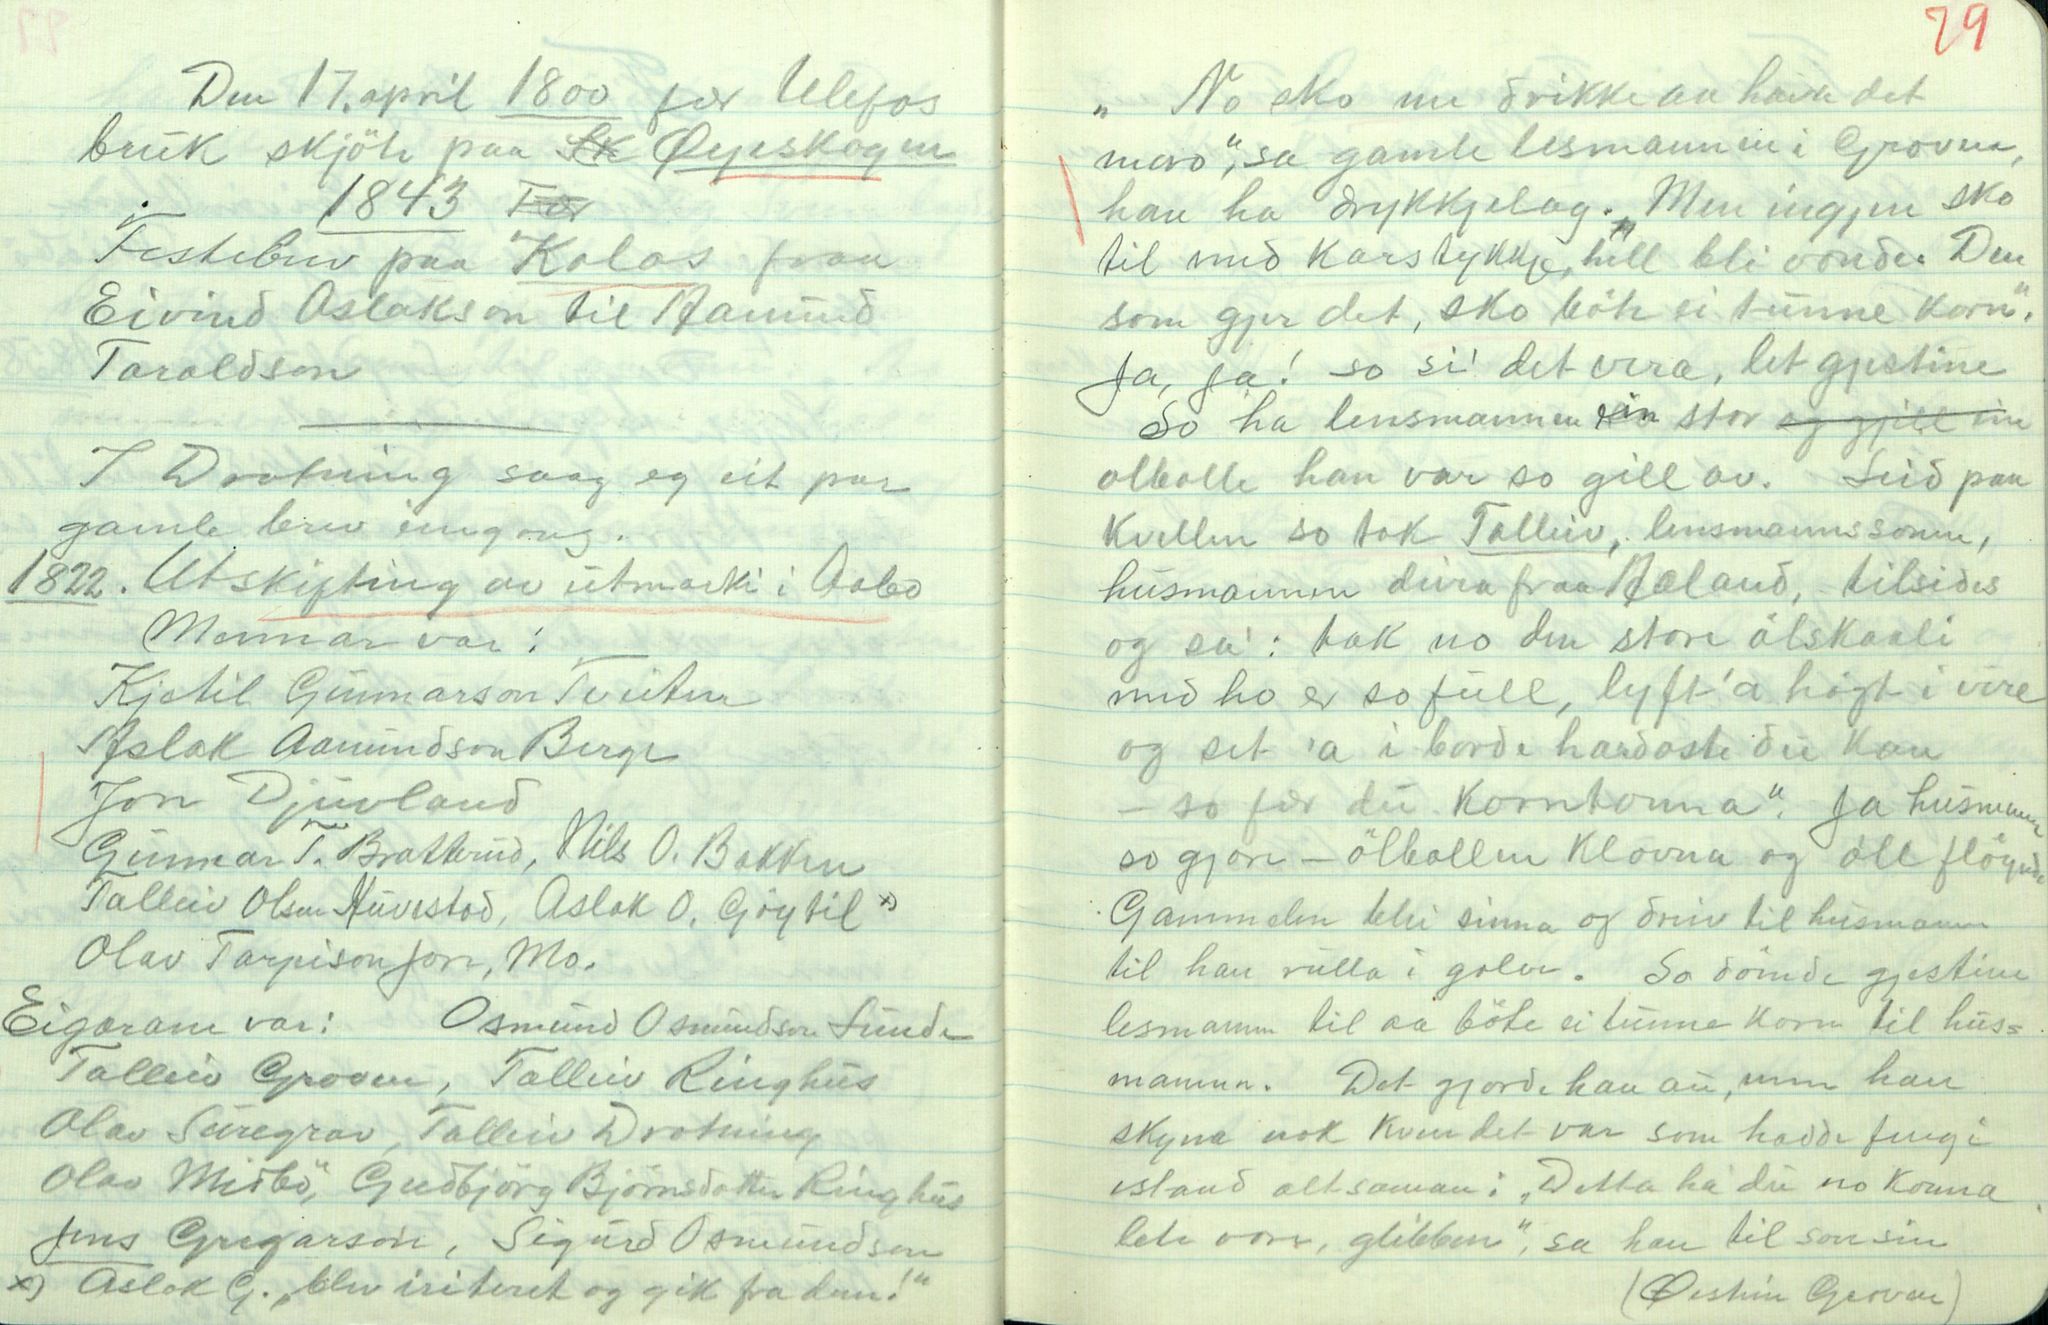 Den 17. april 1800 fær Ulefos
bruk skjöte paa Sk Øyeskogen
1843 Fær
Festebrev paa Kolos fraa
Eivind Aslakson til Aamund
Taraldson
I Drotning saag eg eit par
gamle brev eingong.
1822. Utskifting av utmarki i Aabø
Mennar var:
Kjetil Gunnarson Tveiten
Aslak Aamundson Berge
Jon Djuvland
Gunnar T. Bratterud, Nils O. Bakken
Talleiv Olsen Huvestad, Aslak O. Göytil x)
Olav Tarjeison Jore, Mo.
Eigarane var: Osmund Osmundson Sunde
Talleiv Groven, Talleiv Ringhus
Olav Suregrav, Talleiv Drotning
Olav Midbö, Gudbjörg Björnsdotter Ringhus
Jens Gregarson, Sigurd Osmundson
x) Aslak G. „blev iriteret og gik fra den!"
79
„No sko me drikke aa hava det
moro", sa gamle lesmannen i Groven,
han ha drykkjelag. „Men ingjen sko
til med karstykkje, hell bli vonde. Den
som gjer det, sko böte ei tunne korn".
Ja, ja! so si' det vera, let gjestine
So ha lensmannen ein stor og gjill ein
olbolle han var so gill av. Seid paa
kvellen so tok Talleiv, lensmannssonen,
husmannen deira fraa Æland, tilsides
og sa': tak no den store ölskaali
med ho er so full, lyft 'a högt i vere
og set 'a i borde hardaste du kan
– so fær du korntonna". Ja husmannen
so gjore – ölbollen klovna og öll flöynde
Gammelen blei sinna og dreiv til husmannen
til han rulla i golve. So dömde gjestine
lesmannen til aa böte ei tunne korn til hus=
mannen. Det gjorde han au, men han
skyna nok kven det var som hadde fengi
istand altsaman: „Detta ha du no konna
lete vore, glibben", sa han til son sin
(Øystein Groven)